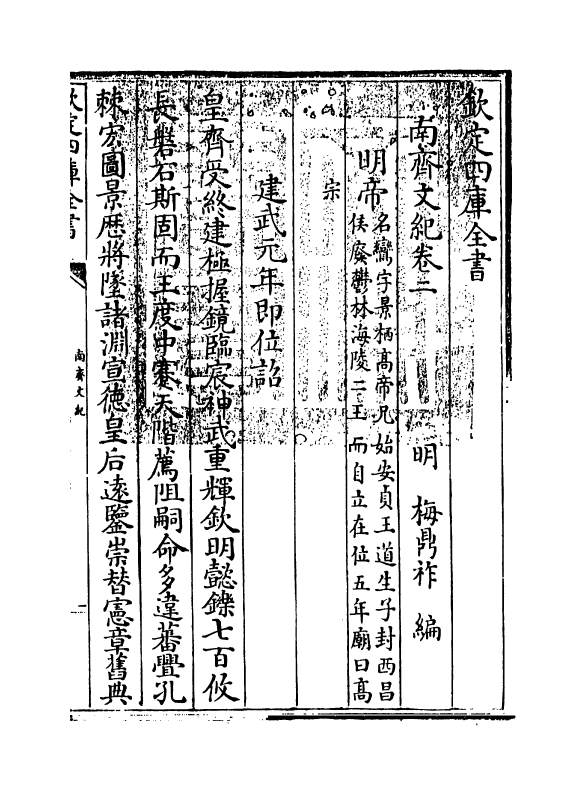 欽定四庫全書
南齊文紀卷二
明 梅鼎祚 編
明帝
名鸞字景栖髙帝兄始安貞王道生子封西昌
侯廢鬱林海陵二王 而自立在位五年廟曰髙
宗
建武元年即位詔
皇齊受終建極握鏡臨宸神武重輝欽明懿鑠七百攸
長磐石斯固而王度中蹇天階薦阻嗣命多違蕃釁孔
棘宏圖景歴將墜諸淵宣徳皇后遠鑒崇替憲章舊典
欽定四庫全書
南齊文紀
一